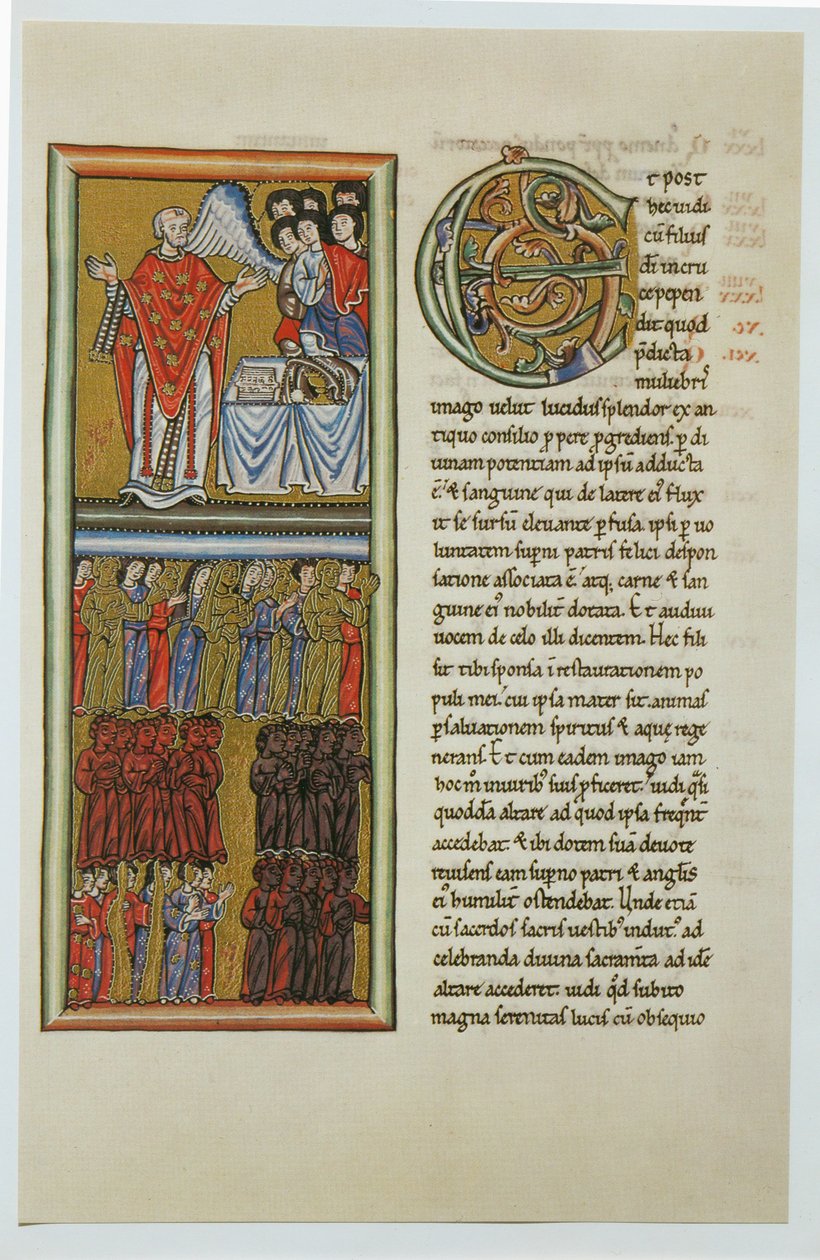 Et post
hec uidi
cū filius
dī in cru
ce pepen
dit quod
p̄dicta
muliebrı̓
imago uelut lucidus splendor ex an
tiquo consilio ꝓpere ꝓgrediens. ꝑ di
uinam potentiam ad ipsū adducta
ē.́ ⁊ sanguine qui de latere eı̓ flux
it se sursū eleuante ꝑfusa. ipsi ꝑ uo
luntatem suꝑni patris felici despon
satione associata ē.́ atq; carne ⁊ san
guine eı̓ nobilit̄ dotata. Et audiui
uocem de celo illi dicentem. Hec fili
sit tibi sponsa ī restaurationem po
puli mei.́ cui ipsa mater sit. animas
ꝑ saluationem spiritus ⁊ aquę rege
nerans. Et cum eadem imago iam
hoc m̊ in uirib̓ suis ꝓficeret.́ uidi q̄si
quoddā altare ad quod ipsa freq̄nt̄
accedebat. ⁊ ibi dotem suā deuote
reuisens eam suꝑno patri ⁊ angl̄is
eı̓ humilit̄ ostendebat. Unde etiā
cū sacerdos sacris uestib̓ indut̓ ad
celebranda diuina sacram̄ta ad idē
altare accederet. uidi qd̄ subito
magna serenitas lucis cū obsequio